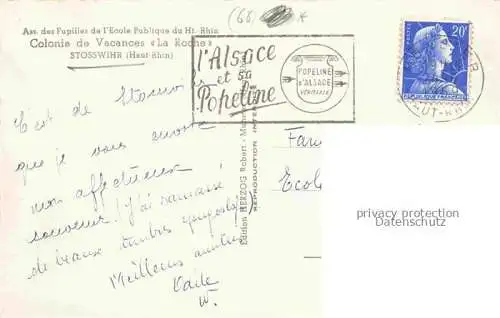 (68)
Ass. des Pupilles de l'Ecole Publique du Ht. Rhin
Colonie de Vacances «La Roche»
STOSSWIHR (Haut-Rhin)
l'Alsace
et sa
Popeline
POPELINE
D'ALSACE
VÉRITABLE
20F
POSTES
REPUBLIQUE FRANÇAISE
HAUT-RHIN
C'est de Stosswihr
que je vous envoie
mon affectueux
souvenir! J'ai ramassé
de beaux timbres yougoslaves
Meilleures amitiés
Edition HERZOG Robert - Munster
REPRODUCTION INTERDITE
Ecol
privacy protection
Datenschutz